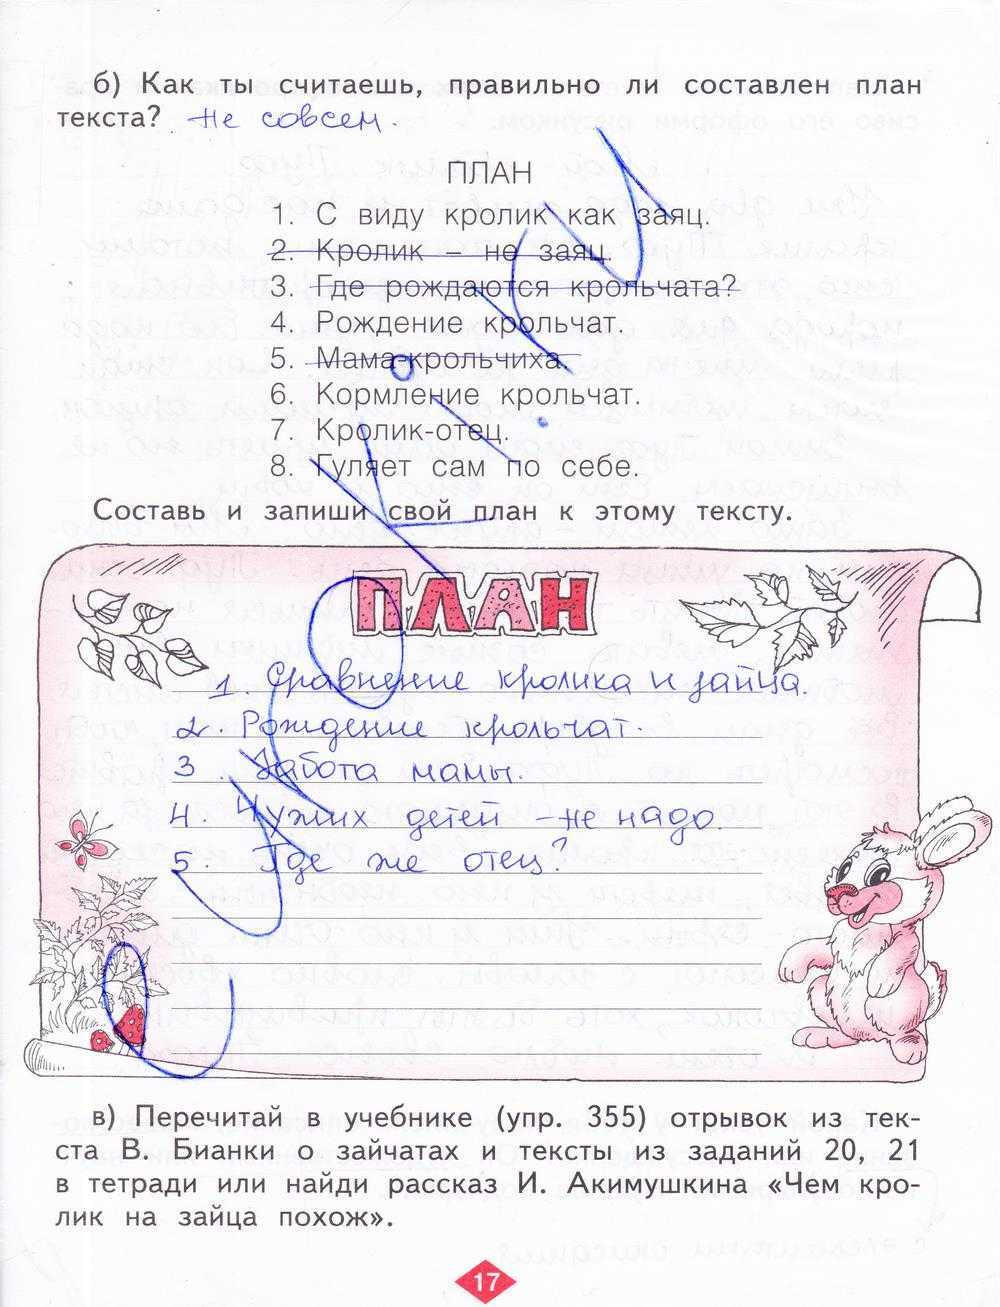 б) Как ты считаешь, правильно ли составлен план
текста? Не совсем
ПЛАН
1. С виду кролик как заяц.
2. Кролик – не заяц.
3. Где рождаются крольчата?
4. Рождение крольчат.
5. Мама-крольчиха.
6. Кормление крольчат.
7. Кролик-отец.
8. Гуляет сам по себе.
Составь и запиши свой план к этому тексту.
ПЛАН
1 Сравнение кролика и зайца.
2. Рождение крольчат.
3. Забота мамы.
4. Чужих детей – не надо.
5 Где же отец?
в) Перечитай в учебнике (упр. 355) отрывок из тек-
ста В. Бианки о зайчатах и тексты из заданий 20, 21
в тетради или найди рассказ И. Акимушкина «Чем кро-
лик на зайца похож».
17